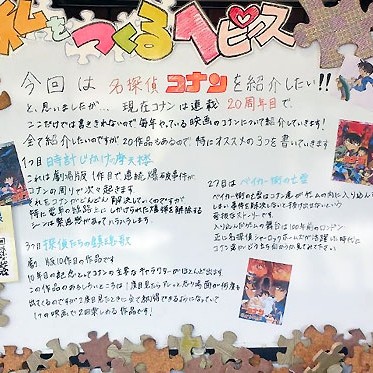 私をつくるピース
今回は 名探偵コナンを紹介したい!!
と、思いましたが… 現在コナンは連載20周年目で、
ここだけでは書ききれないので毎年やっている映画のコナンについて紹介していきます!
全て紹介したいのですが20作品もあるので特にオススメの3つを書いていきます
1つ目 時計じかけの摩天楼
これは劇場版1作目で連続爆破事件が
コナンの周りで次々起きます
それをコナンがどんどん解決していくのですが
特に電車の線路上にしかけられた爆弾を解除する
シーンは緊迫感があってハラハラします
2つ目は ベイカー街の亡霊
ベイカー街の亡霊はコナン達がゲームの内に入り込んで
しまい事件を解決しないと抜け出せないという
奇抜なストーリーです。
入り込んだゲームの舞台は100年前のロンドン
正に名探偵シャーロックホームズが活躍した時代に
コナン達がどう立ち向かうか見ものです。
3つ目 探偵たちの鎮魂歌
劇 版10作目の作品です
10年目の記念としてコナンの主要なキャラクターがほとんど出ます
この作品のおもしろいところは1度目見たら
出てくるのですが2度目見たときに全て納得できるようになっていて
1つの映画で2回楽しめる作品です!